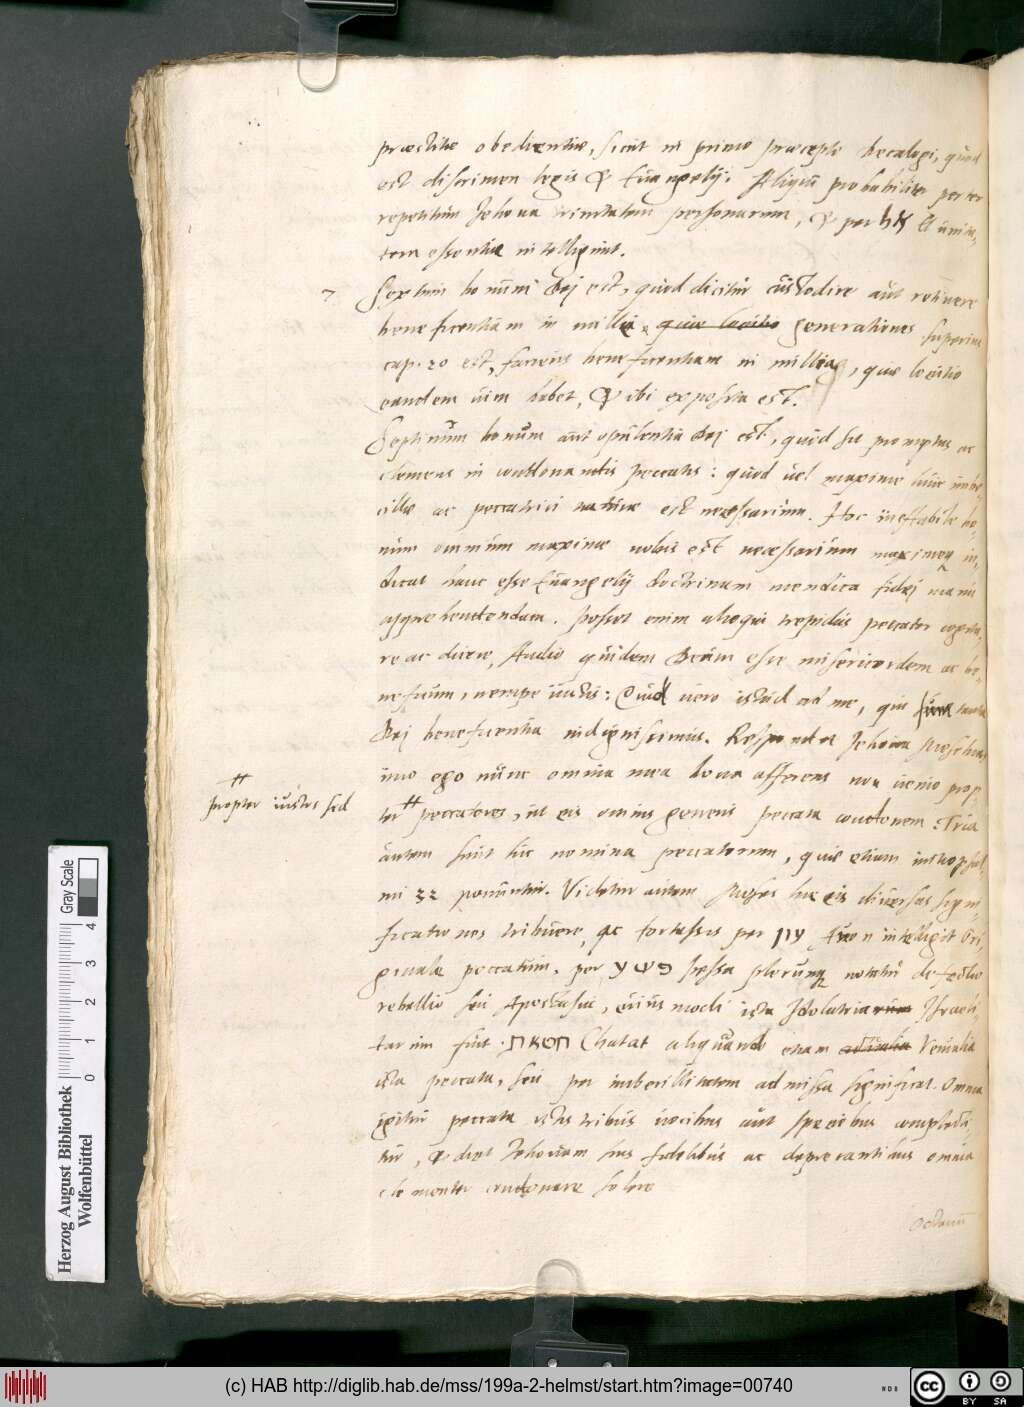 præstitæ obedientiæ, sicut in primo præcepto decalogi, quod
est discrimen legis & Euangelij. Aliqui probabiliter per ter
repetitum Jehova trinitatem personarum, & per אל El unita-
tem essentiæ intelligunt.
7 Sextum bonum Dei est, quod dicitur custodire aut retinere
beneficentiam in millia, quæ locutio generationes. superius
cap. 20 est, faciens beneficentiam in millia, quæ locutio
eandem vim habet, & ibi exposita est.
Septimum bonum aut opulentia Dei est, quod sit promptus ac
clemens in condonandis peccatis: quod vel maxime huic imbe-
cillæ ac peccatrici naturæ est necessarium. Hoc ineffabile bo-
num omnium maxime nobis est necessarium maximeq in-
dicat hanc esse Euangelij doctrinam mendica fidei manu
apprehendendam. Posset enim alioqui trepidus peccator cogita-
re ac dicere, Audio quidem Deum esse misericordem ac be-
neficum, nempe iustis: Quid vero istud ad me, qui sum tanta
Dei beneficentia indignissimus. Respondet Jehova
imo ego nunc omnia mea bona afferens non venio prop-
ter # peccatores, ut eis omnis generis peccata condonem. Tria
# propter iustos sed
autem sunt hic nomina peccatorum, quæ etiam in psal-
mi 32 ponuntur. Videtur autem Moses hic eis diversas signi-
ficationes tribuere, ac fortassis per עון Auon intelligit Ori-
ginale peccatum, per פשע Pessa plerunq notatur defectio
rebellio seu Apostasia, cuius modi ista Idolatria rum Israeli-
tarum fuit. חטאת Chatat aliquando etiam actualia Venialia
ista peccata, seu per imbecillitatem admissa significat. Omnia
igitur peccata istis tribus vocibus aut speciebus complecti-
tur, & dicit Jehovam his fidelibus ac deprecantibus omnia
clementer condonare solere
Octavum
Herzog August Bibliothek
Wolfenbüttel
0 1 2 3 4
Gray Scale
(c) HAB http://diglib.hab.de/mss/199a-2-helmst/start.htm?image=00740
cc BY SA